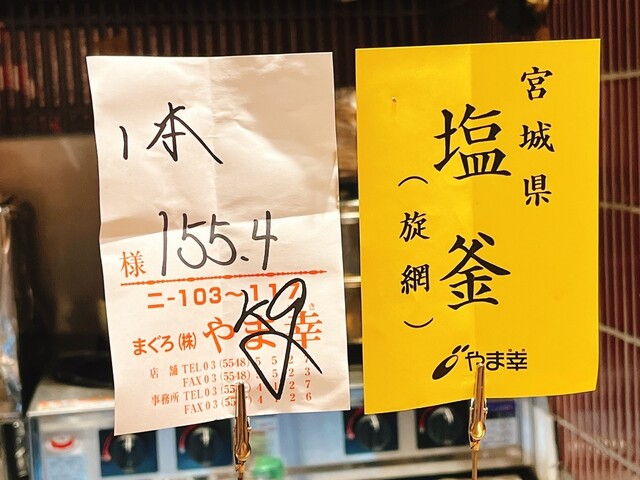 1本
155.4
様
Kg
ニ-103~117
まぐろ(株)やま幸
店舗 TEL 03 (5548)
FAX 03 (5548)
事務所 TEL 03
FAX 03
宮城県
塩釜
(旋網)
やま幸